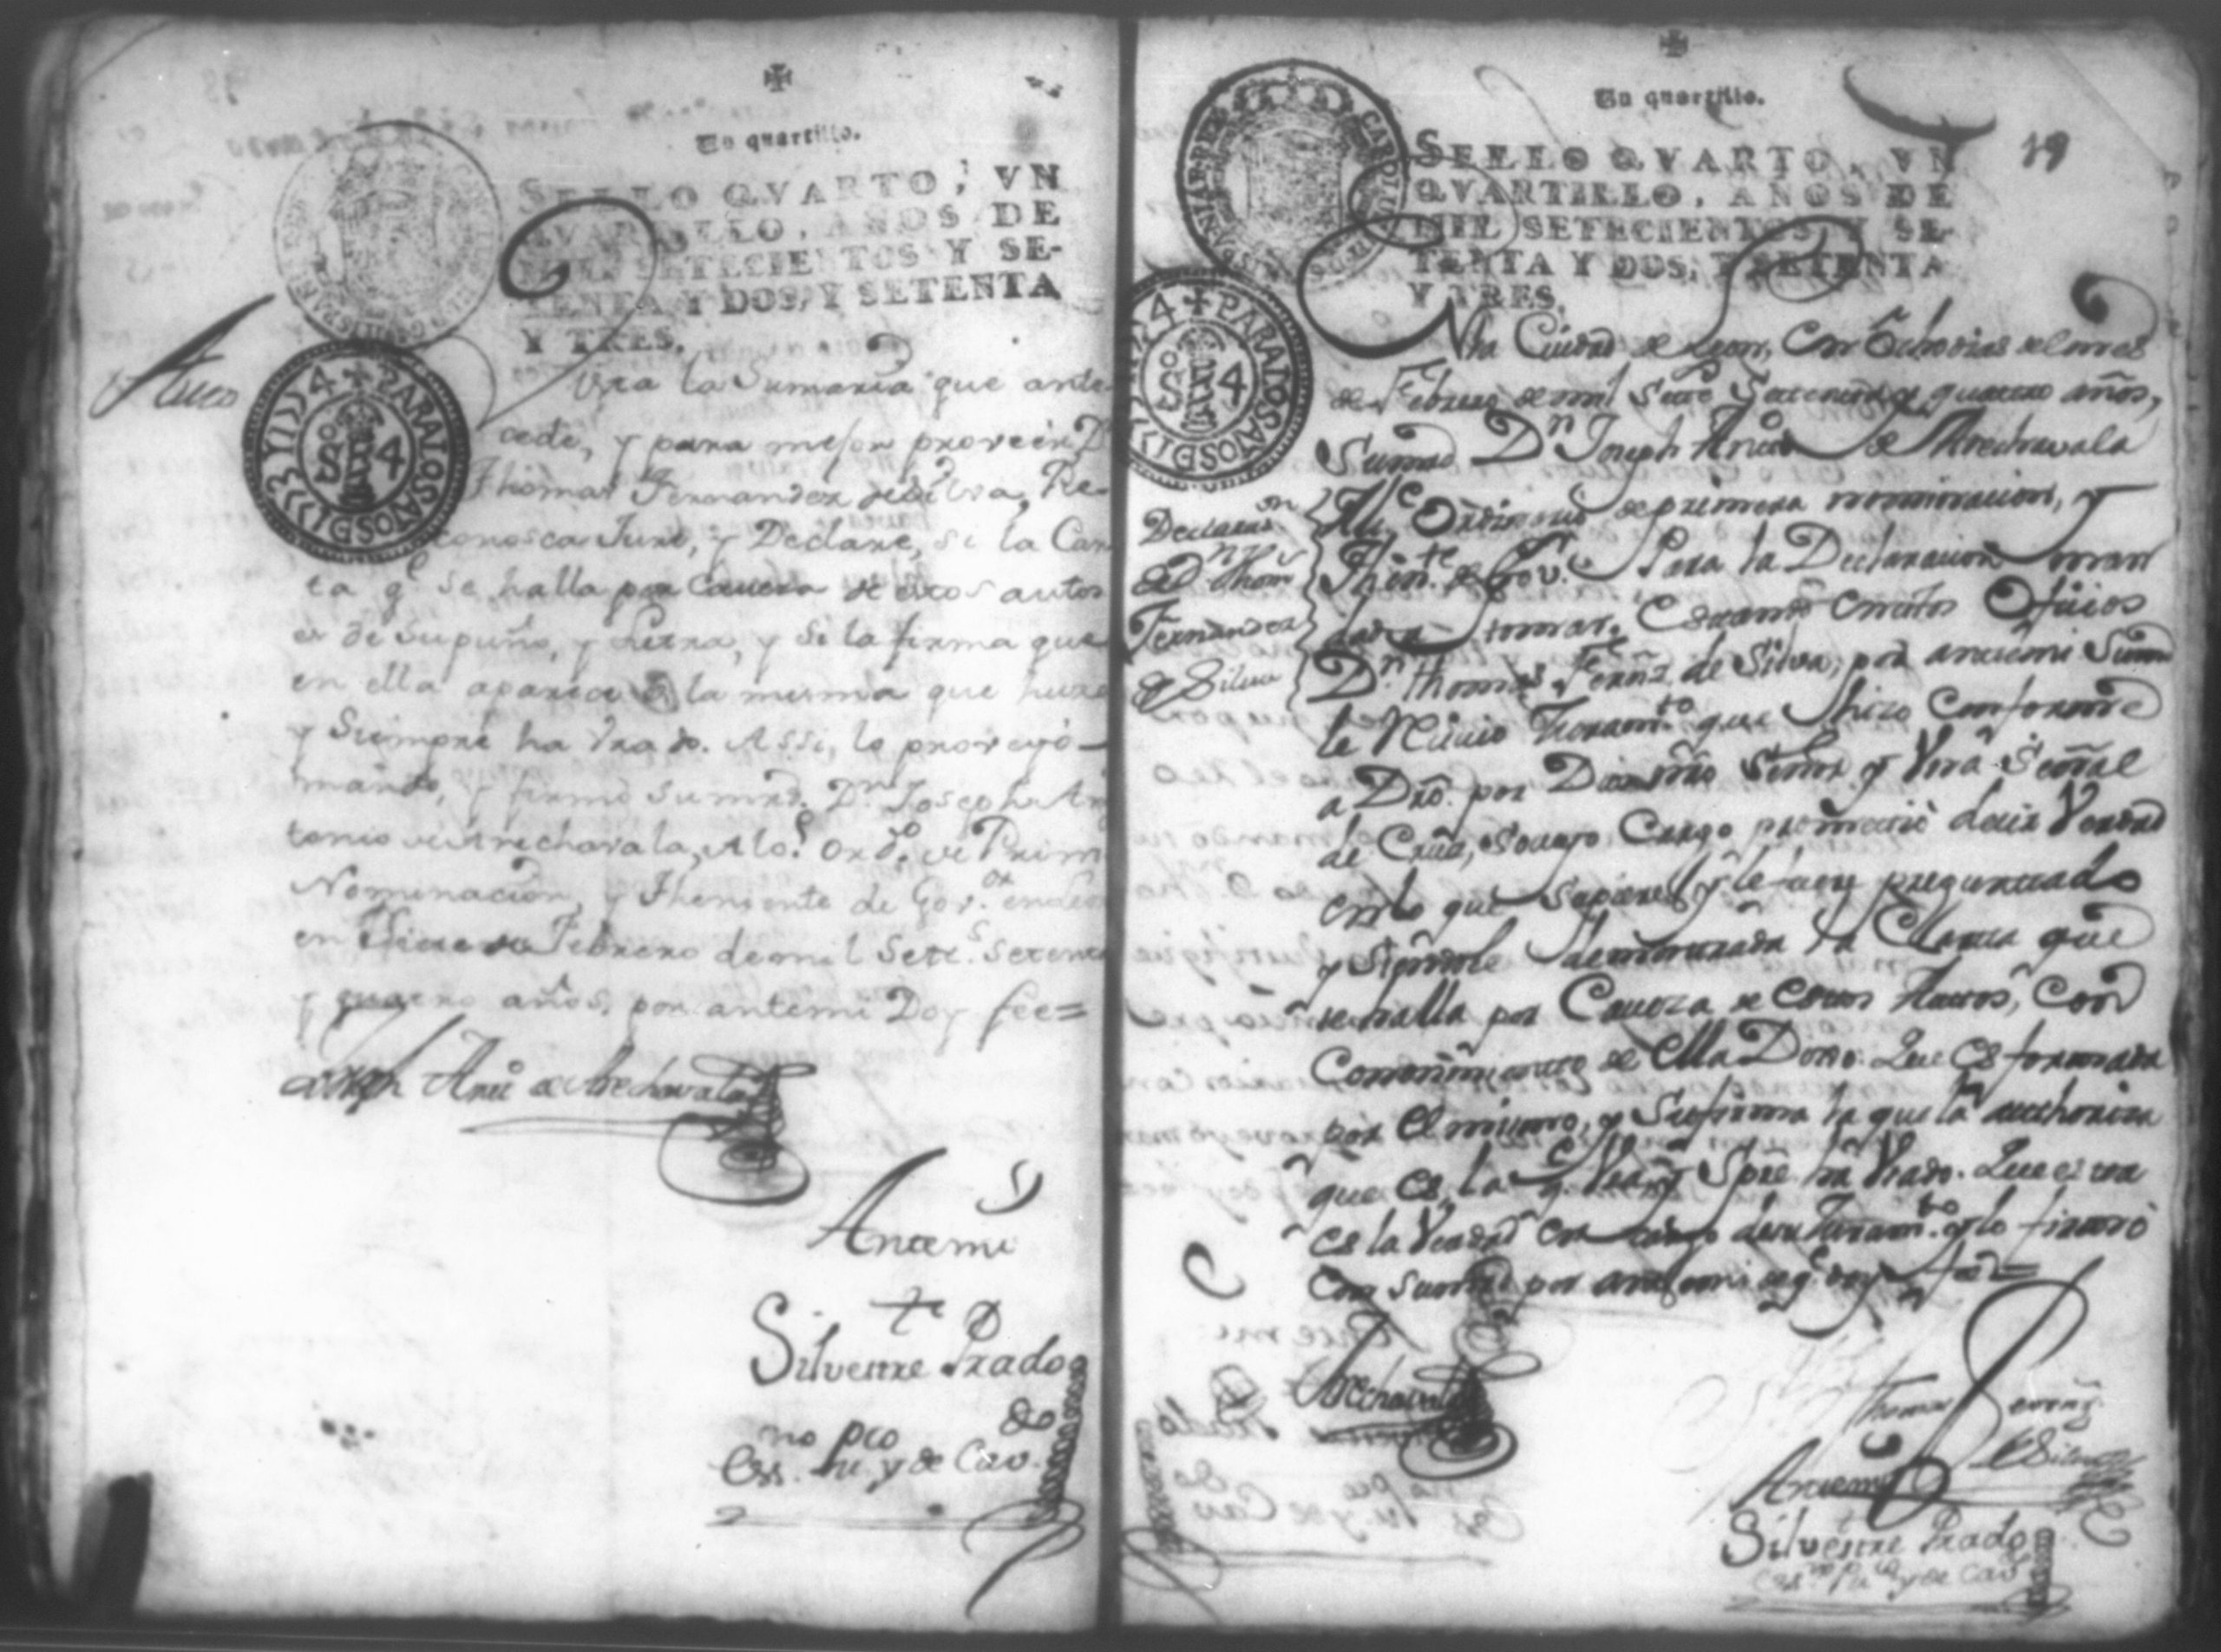 Un quartillo.
SELLO QVARTO, VN
QVARTILLO, AÑOS DE
MIL SETECIENTOS Y SE-
TENTA Y DOS, Y SETENTA
Y TRES.
PARA LOS AÑOS D 1773 Y 1774
So 4
Auto
Vista la Sumaria que ante
cede, y para mejor proveer Dn
Thomas Fernandez de Silva, Re
conosca Jure, y Declare, si la Car
ta qe se halla por Caveza de estos autos
es de su puño, y Letra, y si la firma que
en ella aparece es la misma que hure
y Siempre ha Vsado. Assi, lo proveyó
mando, y firmó sumrd. Dn Joseph An
tonio de Arechavala, Alce. Ordo. de Primra
Nominacion, y Theniente de Govor. en Leon
en siete de Febrero de mil Setts. Setenta
y quatro años, por antemi Doy fee=
Joseph Anto de Arechavala
Antemi
Silvestre Prado
Essno ppco y de Cavdo
Un quartillo.
19
SELLO QVARTO, VN
QVARTILLO, AÑOS DE
MIL SETECIENTOS Y SE-
TENTA Y DOS, Y SETENTA
Y TRES.
CAROLUS
PARA LOS AÑOS D 1773 Y 1774
So 4
Declarasn
de Dn Thoms
Fernandez
de Silva
En la Ciudad de Leon, en Ocho dias del mes
de Febrero de mil Settos Setenta y quatro años,
Sumrd Dn Joseph Anto de Arechavala
Alce Ordinario de primera nominacion, y
Thente. de Govr. Para la Declaracion man
dada tomar, Estando en estos Oficios
Dn. Thomas Fernz de Silva, por antemi Sumrd
le Recivio Juramto que hizo Conforme
a Dro. por Dios nro Señor y Una Señal
de Cruz, so cuyo Cargo prometió decir Verdad
en lo que supiere y le fuere preguntado
y siendole demostrada la Carta que
se halla por Caveza de estos Autos, Con
Conosimiento de ella Dixo. Que es formada
por el mismo, y Su firma la que la authoriza
que es la q. Vsa y Spre ha Vsado. Que esta
es la Verdad en cargo de su Juramto. y lo firmó
con sumrd por antemi de qe doy fee=
Arechavala
Thomas Fernz
de Silva
Antemi
Silvestre Prado
Essno Puco y de Cavdo